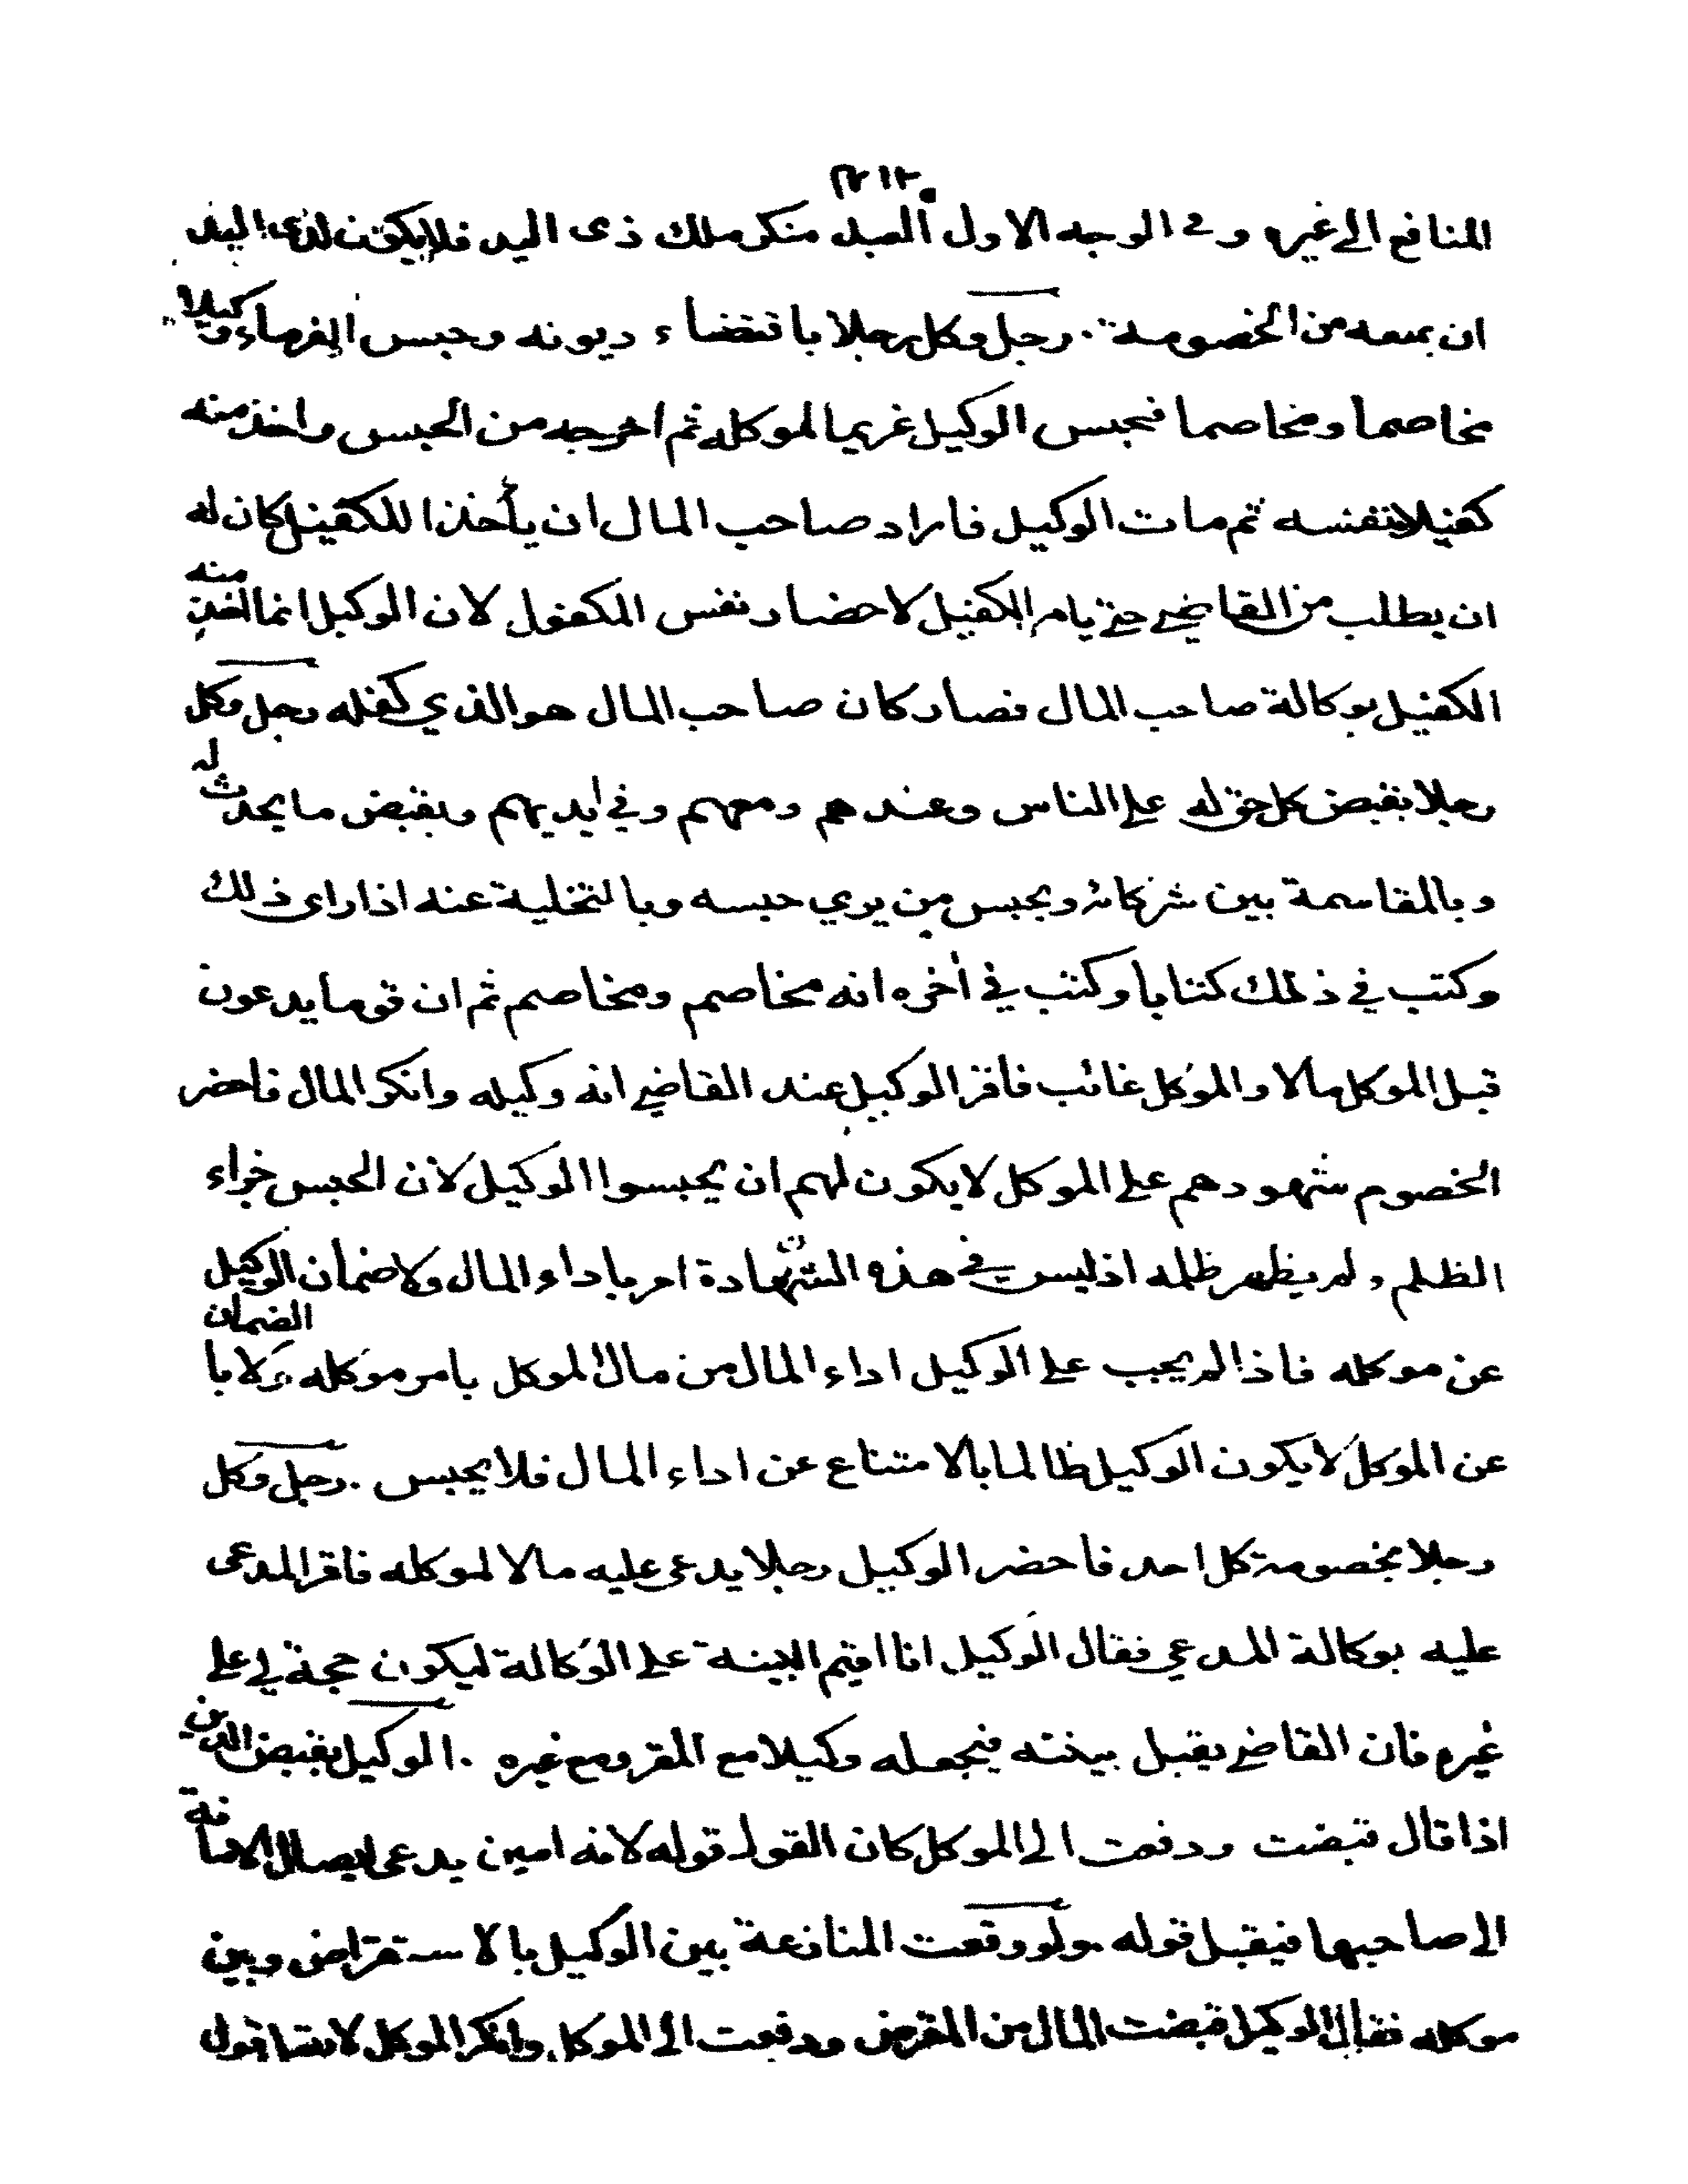 المنافع الى غيره وفى الوجه الاول العبد منكر ملك ذى اليد فلا يكون لذى اليد
ان يمنعه من الخصومة . رجل وكل رجلا باقتضاء ديونه وحبس الغرماء وكيلا
مخاصما ومخاصما فحبس الوكيل غريما لموكله ثم اخرجه من الحبس واخذ منه
كفيلا بنفسه ثم مات الوكيل فاراد صاحب المال ان يأخذ الكفيل كان له
ان يطلب من القاضي حتى يامر الكفيل لاحضار نفس المكفول لان الوكيل انما اخذ منه
الكفيل بوكالة صاحب المال فصار كان صاحب المال هو الذي كفله رجل وكل
رجلا بقبض كل حق له على الناس وعندهم ومعهم وفي ايديهم وبقبض ما يحدث له
وبالمقاسمة بين شركائه ويحبس من يري حبسه وبالتخلية عنه اذا راى ذلك
وكتب في ذلك كتابا وكتب في أخره انه مخاصم ومخاصم ثم ان قوما يدعون
قبل الموكل مالا والموكل غائب فاقر الوكيل عند القاضي انه وكيله وانكر المال فاحضر
الخصوم شهودهم على الموكل لا يكون لهم ان يحبسوا الوكيل لان الحبس جزاء
الظلم ولم يظهر ظلمه اذ ليس في هذه الشهادة امر باداء المال ولا ضمان الوكيل
عن موكله فاذا لم يجب على الوكيل اداء المال من مال الموكل بامر موكله ولا با الضمان
عن الموكل لا يكون الوكيل ظالما بالامتناع عن اداء المال فلا يحبس . رجل وكل
رجلا بخصومة كل احد فاحضر الوكيل رجلا يدعى عليه مالا لموكله فاقر المدعى
عليه بوكالة المدعي فقال الوكيل انا اقيم البينة على الوكالة ليكون حجة لي على
غيره فان القاضي يقبل بينته فيجعله وكيلا مع المقر ومع غيره . الوكيل بقبض الدين
اذا قال قبضت ودفعت الى الموكل كان القول قوله لانه امين يدعى ايصال الامانة
الى صاحبها فيقبل قوله ولو وقعت المنازعة بين الوكيل بالاستقراض وبين
موكله فقال الوكيل قبضت المال من المقرض ودفعت الى الموكل وانكر الموكل لا يقبل قول